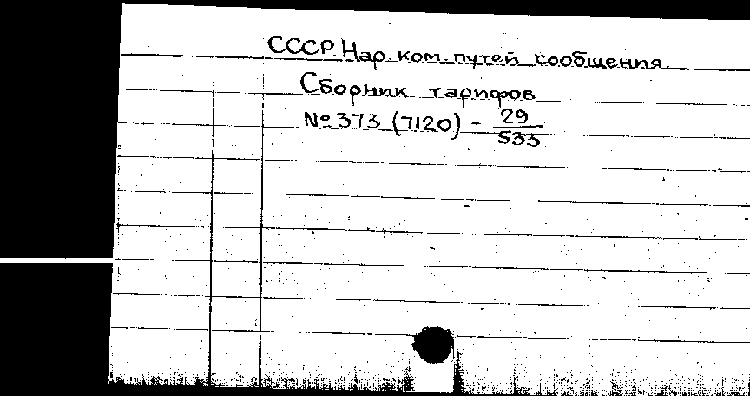 СССР. Нар. ком. путей сообщения.
Сборник тарифов
№ 373 (7120) - 29/533